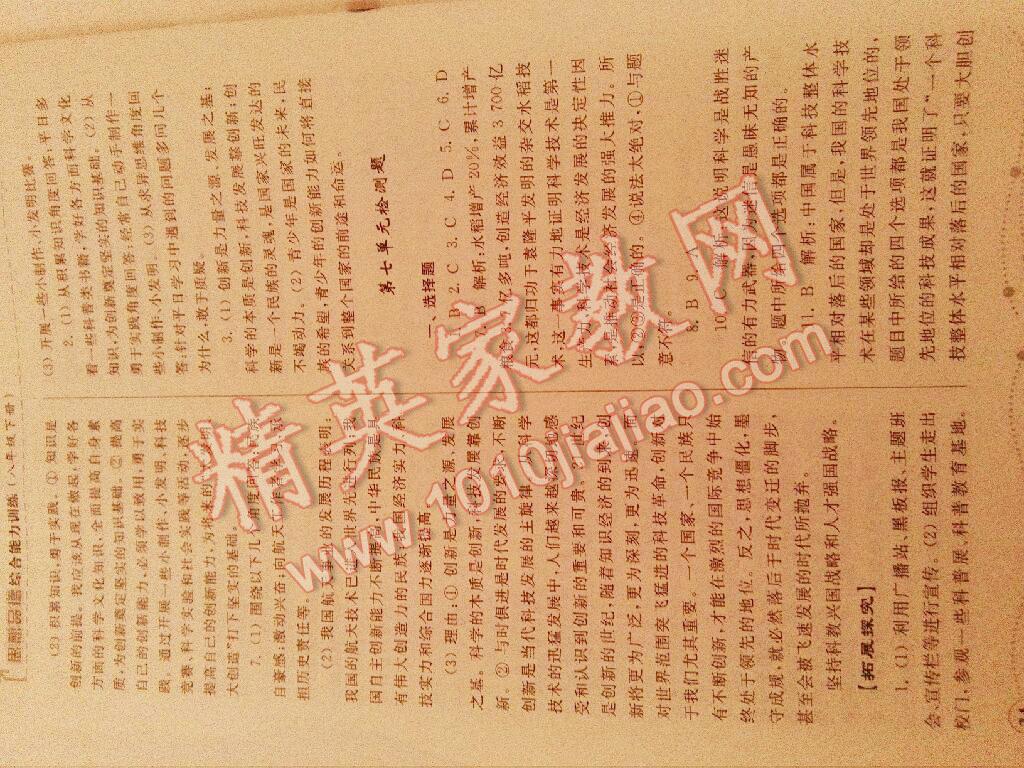 思想品德综合能力训练(八年级下册)
(2) 积累知识,勇于实践。①知识是
创新的前提。我们应该从现在做起,学好各
方面的科学文化知识,全面提高自身素
质,为创新奠定坚实的知识基础。②提高
自己的创新能力,必须学以致用,勇于实
践。通过开展一些小制作、小发明、科技
竞赛、科学实验和社会实践等活动,逐步
提高自己的创新能力,为将来的
大创造”打下坚实的基础。
7. (1) 围绕以下几个角度回答:民族
自豪感;激动兴奋;向航天
担历史责任等。
(2) 我国航天事业的发展历程表明:
我国的航天技术已
国自主创新能力不断提高,中华民族是具
有伟大创造力的民族,我国经济实力、科
技实力和综合国力逐渐提高。
(3) 理由:①创新是力量之源、发展
之基。科学的本质是创新,科技发展靠创
新。②与时俱进是时代发展的要求,不断
创新是当代科技发展的主旋律。从科学
技术的迅猛发展中,人们越来越深切地感
受和认识到创新的重要和可贵。21世纪
是创新的世纪,随着知识经济的到来,创
新将更为广泛,更为深刻,更为迅速。面
对世界范围突飞猛进的科技革命,创新对
于我们尤其重要。一个国家、一个民族只
有不断创新,才能在激烈的国际竞争中始
终处于领先的地位。反之,思想僵化,墨
守成规,就必然落后于时代变迁的脚步,
甚至会被飞速发展的时代所抛弃。
坚持科教兴国战略和人才强国战略。
【拓展探究】
1. (1) 利用广播站、黑板报、主题班
会、宣传栏等进行宣传。(2) 组织学生走出
校门,参观一些科普展、科普教育基地。
(3) 开展一些小制作、小发明比赛。
2. (1) 从积累知识角度回答:平日多
看一些科普类书籍,学好各方面科学文化
知识,为创新奠定坚实的知识基础。(2) 从
勇于实践角度回答:经常自己动手制作一
些小制作、小发明。(3) 从求异思维角度回
答:针对平日学习中遇到的问题多问几个
为什么,敢于质疑。
3. (1) 创新是力量之源、发展之基;
科学的本质是创新,科技发展靠创新;创
新是一个民族的灵魂,是国家兴旺发达的
不竭动力。(2) 青少年是国家的未来,民
族的希望,青少年的创新能力如何将直接
关系到整个国家的前途和命运。
第七单元检测题
一、选择题
1. B 2. C 3. C 4. D 5. C 6. D
7. B 解析:水稻增产20%,累计增产
亿多吨,创造经济效益3 700亿
元,这都归功于袁隆平发明的杂交水稻技
术。这一事实有力地证明科学技术是第一
生产力,科学技术是经济发展的决定性因
素,是推动社会经济发展的强大推力。所
以,②③是正确的。④说法太绝对,①与题
意不符。
8. B 9. A
10. C 解析:这说明科学是战胜迷
信的有力武器,因为迷信是愚昧无知的产
物。题中所给四个选项都是正确的。
11. B 解析:中国属于科技整体水
平相对落后的国家,但是,我国的科学技
术在某些领域却是处于世界领先地位的,
题目中所给的四个选项都是我国处于领
先地位的科技成果,这就证明了“一个科
技整体水平相对落后的国家,只要大胆创
精英家教网
www.1010jiajiao.com